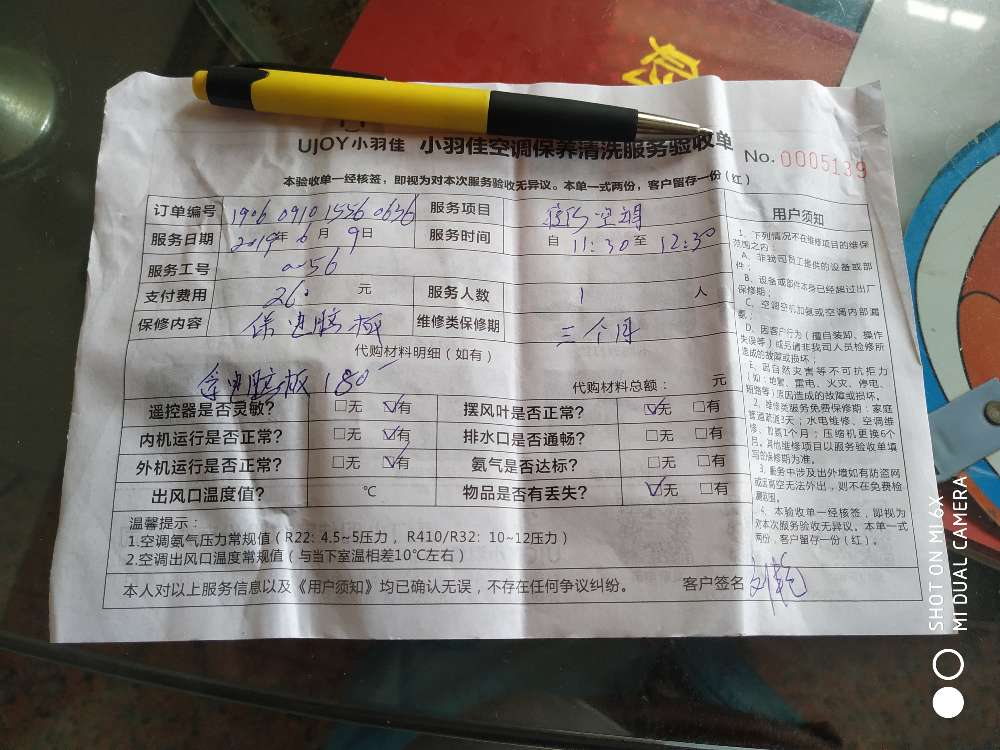 UJOY小羽佳 小羽佳空调保养清洗服务验收单
No. 0005139
本验收单一经核签，即视为对本次服务验收无异议。本单一式两份，客户留存一份（红）
订单编号 1906 0910 1556 0656 服务项目 空调
服务日期 2019年 6月 9日 服务时间 自 11:30 至 12:30
服务工号 056
支付费用 260 元 服务人数 1 人
保修内容 保电脑板 维修类保修期 三个月
代购材料明细（如有）
电脑板 180 代购材料总额： 元
遥控器是否灵敏？ □无 ☑有 摆风叶是否正常？ ☑无 □有
内机运行是否正常？ □无 ☑有 排水口是否通畅？ □无 □有
外机运行是否正常？ □无 ☑有 氨气是否达标？ □无 □有
出风口温度值？ ℃ 物品是否有丢失？ ☑无 □有
温馨提示：
1.空调氨气压力常规值（R22: 4.5~5压力，R410/R32: 10~12压力）
2.空调出风口温度常规值（与当下室温相差10℃左右）
本人对以上服务信息以及《用户须知》均已确认无误，不存在任何争议纠纷。 客户签名
用户须知
1、下列情况不在维修项目的维保
范围之内：
A、非我司员工提供的设备或部
件；
B、设备或部件本身已经超过出厂
保修期；
C、空调空机加氨或空调内部漏
氨；
D、因客户行为（擅自装卸、操作
失误等）或另请非我司人员检修所
造成的故障或损坏；
E、因自然灾害等不可抗拒力
（如：地震、雷电、火灾、停电、
短路等）原因造成的故障或损坏。
2、维修类服务免费保修期：家庭
管道疏通3天；水电维修、空调维
修、首赢1个月；压缩机更换6个
月。其他维修项目以服务验收单填
写的保修期为准。
3、服务中涉及出外墙如有防盗网
或因高空无法外出，则不在免费检
测范围。
4、本验收单一经核签，即视为
对本次服务验收无异议。本单一式
两份，客户留存一份（红）。
SHOT ON MI 6X
MI DUAL CAMERA